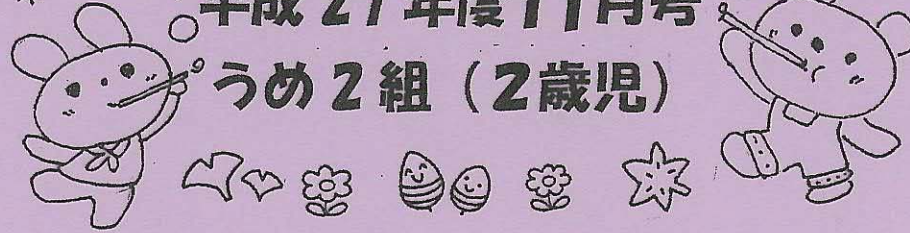 平成27年度11月号
うめ2組(2歳児)